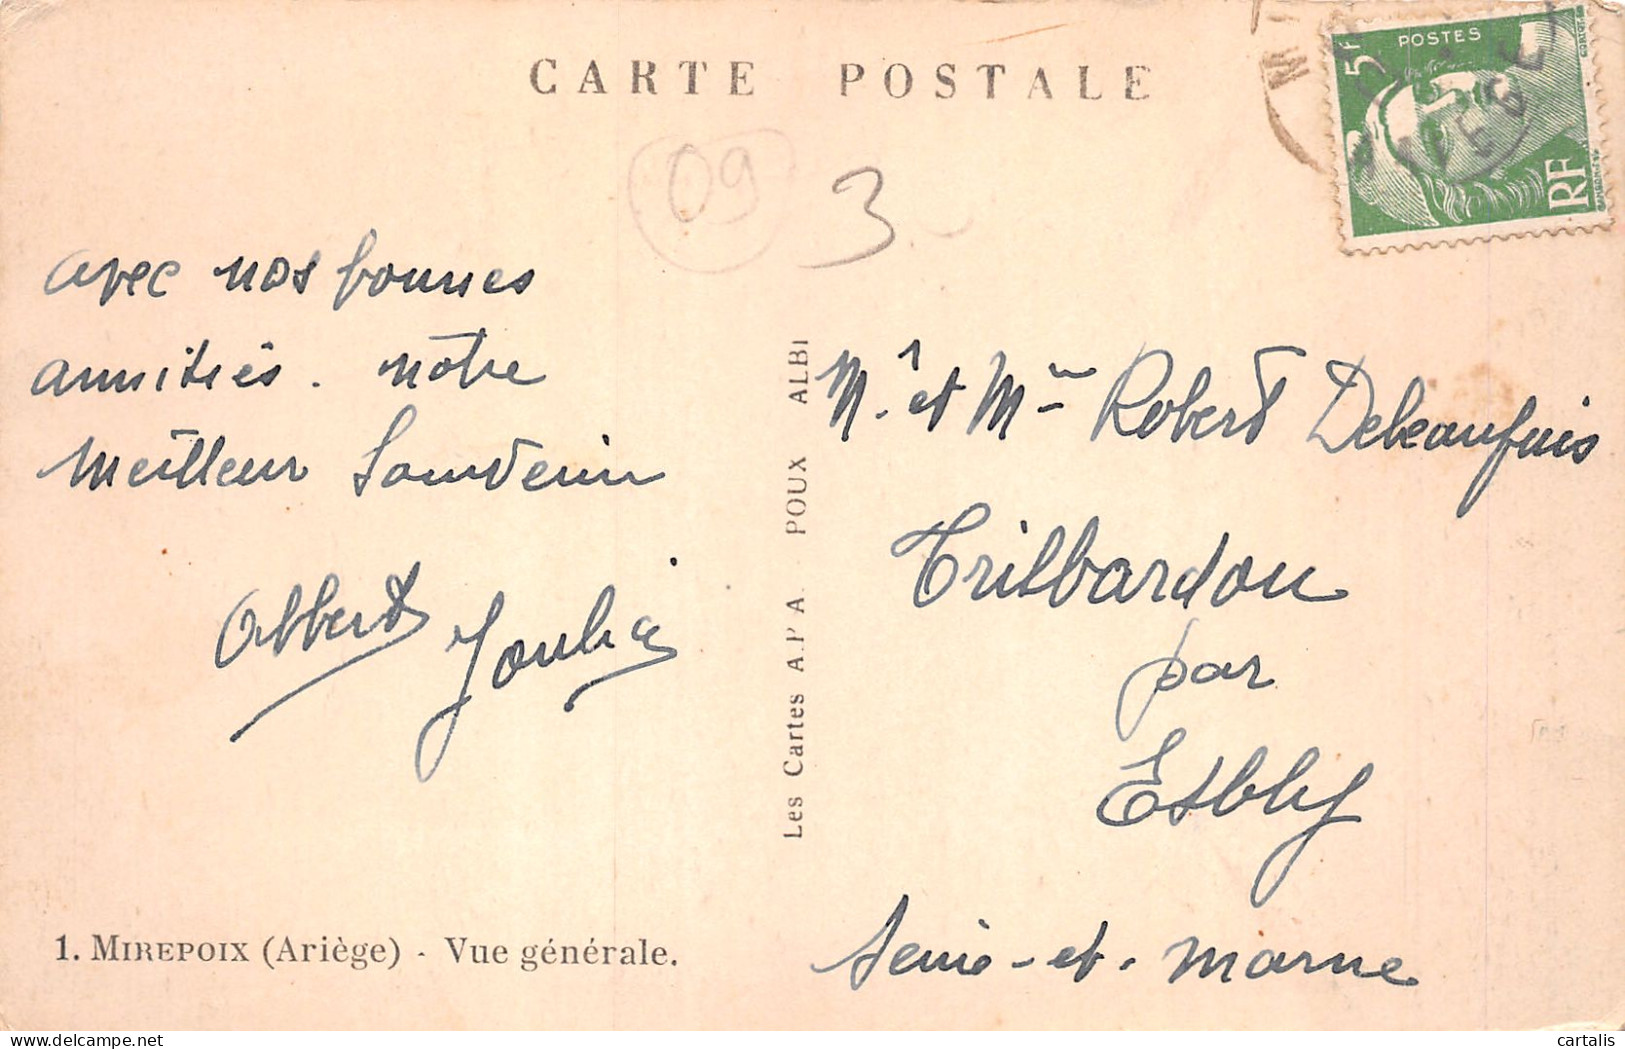 CARTE POSTALE
POSTES
5F
RF
09
3
avec nos bonnes
amitiés. notre
meilleur Souvenir
Albert
Les Cartes A.P.A. POUX ALBI
Mr et Mme Robert Debeaufuis
Trilbardou
par
Esbly
Seine-et-marne
1. MIREPOIX (Ariège) - Vue générale.
cartalis